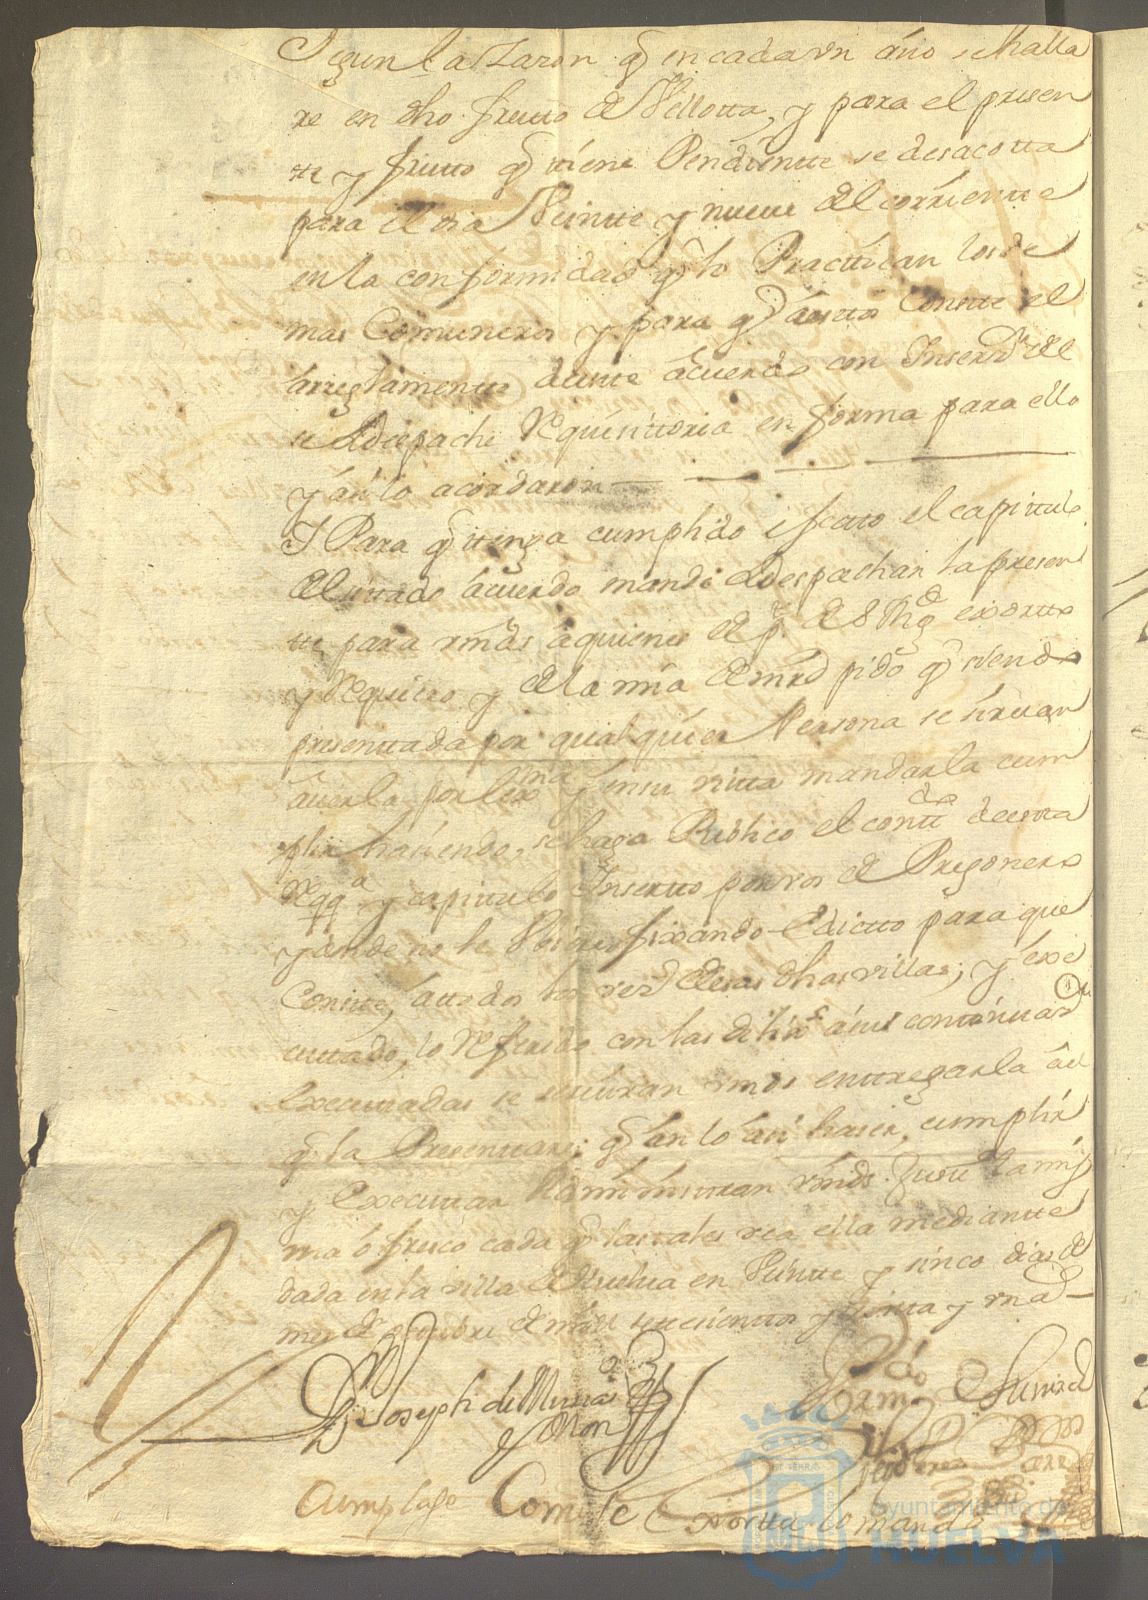 Segun la Razon q̃ en cada un año se halla
re en dho fruto de Vellotta, y para el presen
te y frutto q̃ tiene Pendiente se desacotta
para el dia Veintte y nueve del corriente
en la conformidad q̃ lo Practtican los de
mas Comuneros y para q̃ a estos Conste el
arreglamento deeste acuerdo con Inserz.n del
se despache Requisittoria en forma para ello
y asi lo acordaron
I Para q̃ ttenga cumplido efecto el capittulo
del zittado acuerdo mandé despachar la presen
tte para vmds a quienes de p.te de S Mg.d exortto
y Requiero y de la mia de mrd pido q̃ siendo
presenttada por qualquier Persona se sirvan
averla por lex.ma y en su vistta mandarla cum
plir haciendo, se haga Publico el contt.do de estta
Reqq.a y capittulo Insertto por voz de Pregonero
y donde no le Vbiere fixando Edictto para que
Conste, a ttodos los vez.s de esas dhas villas; y exe
cuttado, lo Referido con las dilix.s a su conttinuaz.n
Executtadas se servirán vmds enttregarla a el
q̃ la Presenttare; q̃ en lo asi haser, cumplir
y Executtar Administtran vmds Justt.a y la mis
ma ofresco cada q̃ las ttales vea ella mediantte
dada en la villa de Huelva en Veintte y sinco dias de
mes de octubre de mill settecienttos y ttreinta y un a.s
D.n Joseph de
Por m.do
Cumplase Comitte Exortto lo mando
Ayuntamiento de
HUELVA